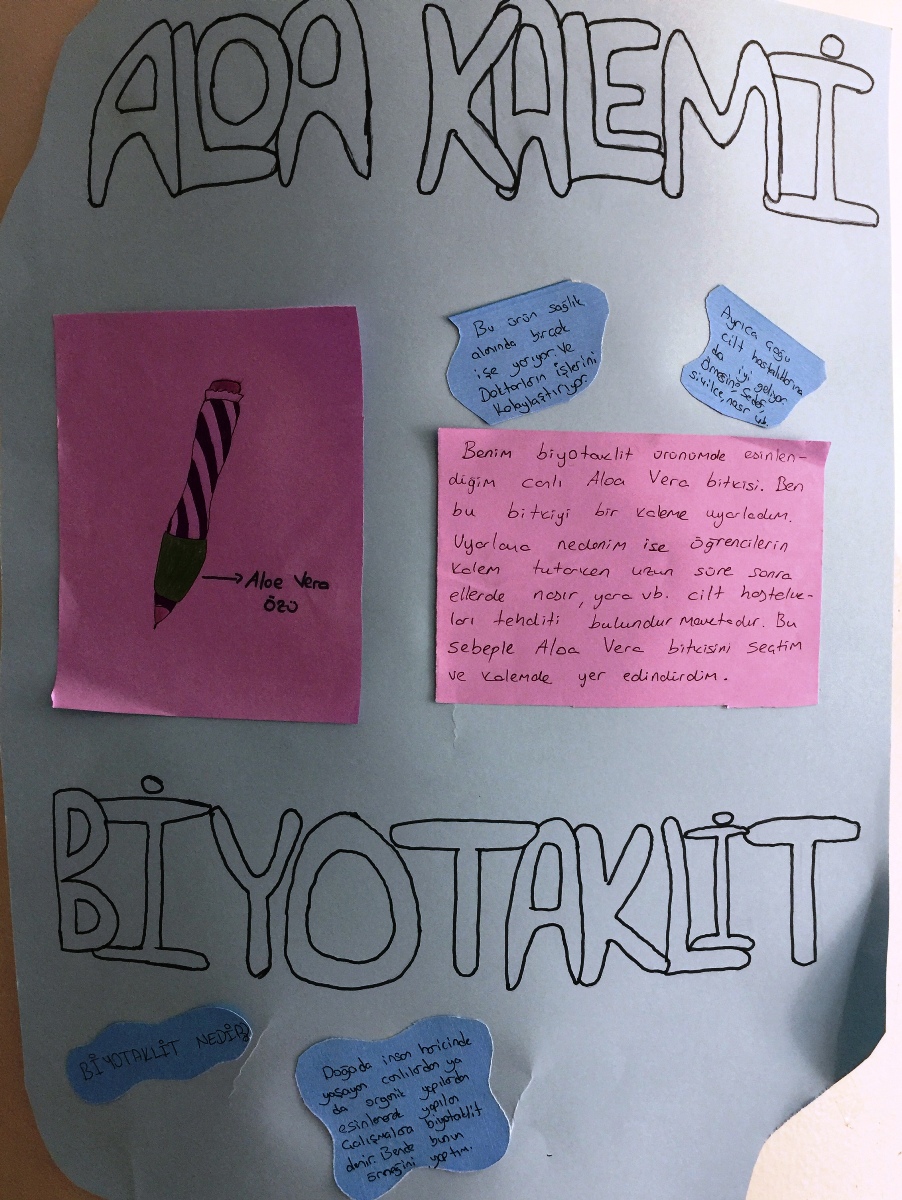 ALOA KALEMİ
Bu ürün sağlık
alanında birçok
işe yarıyor. Ve
Doktorların işlerini
Kolaylaştırıyor.
Ayrıca çoğu
cilt hastalıklarına
da iyi geliyor
Örneğin; Sedef,
sivilce, nasır vb.
Benim biyotaklit ürünümde esinlen-
diğim canlı Aloa Vera bitkisi. Ben
bu bitkiyi bir kaleme uyarladım.
Uyarlama nedenim ise öğrencilerin
kalem tutarken uzun süre sonra
ellerde nasır, yara vb. cilt hastalık-
ları tehditi bulundurmaktadır. Bu
sebeple Aloa Vera bitkisini seçtim
ve kalemde yer edindirdim.
Aloe Vera
özü
BİYOTAKLİT
BİYOTAKLİT NEDİR?
Doğada insan haricinde
yaşayan canlılardan ya
da organik yapılardan
esinlenerek yapılan
çalışmalara biyotaklit
denir. Bende bunun
örneğini yaptım.